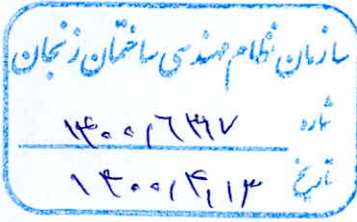 سازمان نظام مهندسی ساختمان زنجان
شماره
تاریخ ۱۴۰۰/۴/۱۳